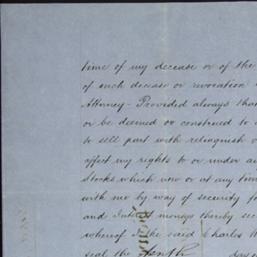 time of my decease or of the
of such decease or revocation
Attorney - Provided always that
or be deemed or construed to
to sell part with relinquish o
affect my rights to or under a
Stocks which now or at any time
with me by way of security fo
and Interest moneys thereby sec
whereof I the said Charles W
seal the tenth day o